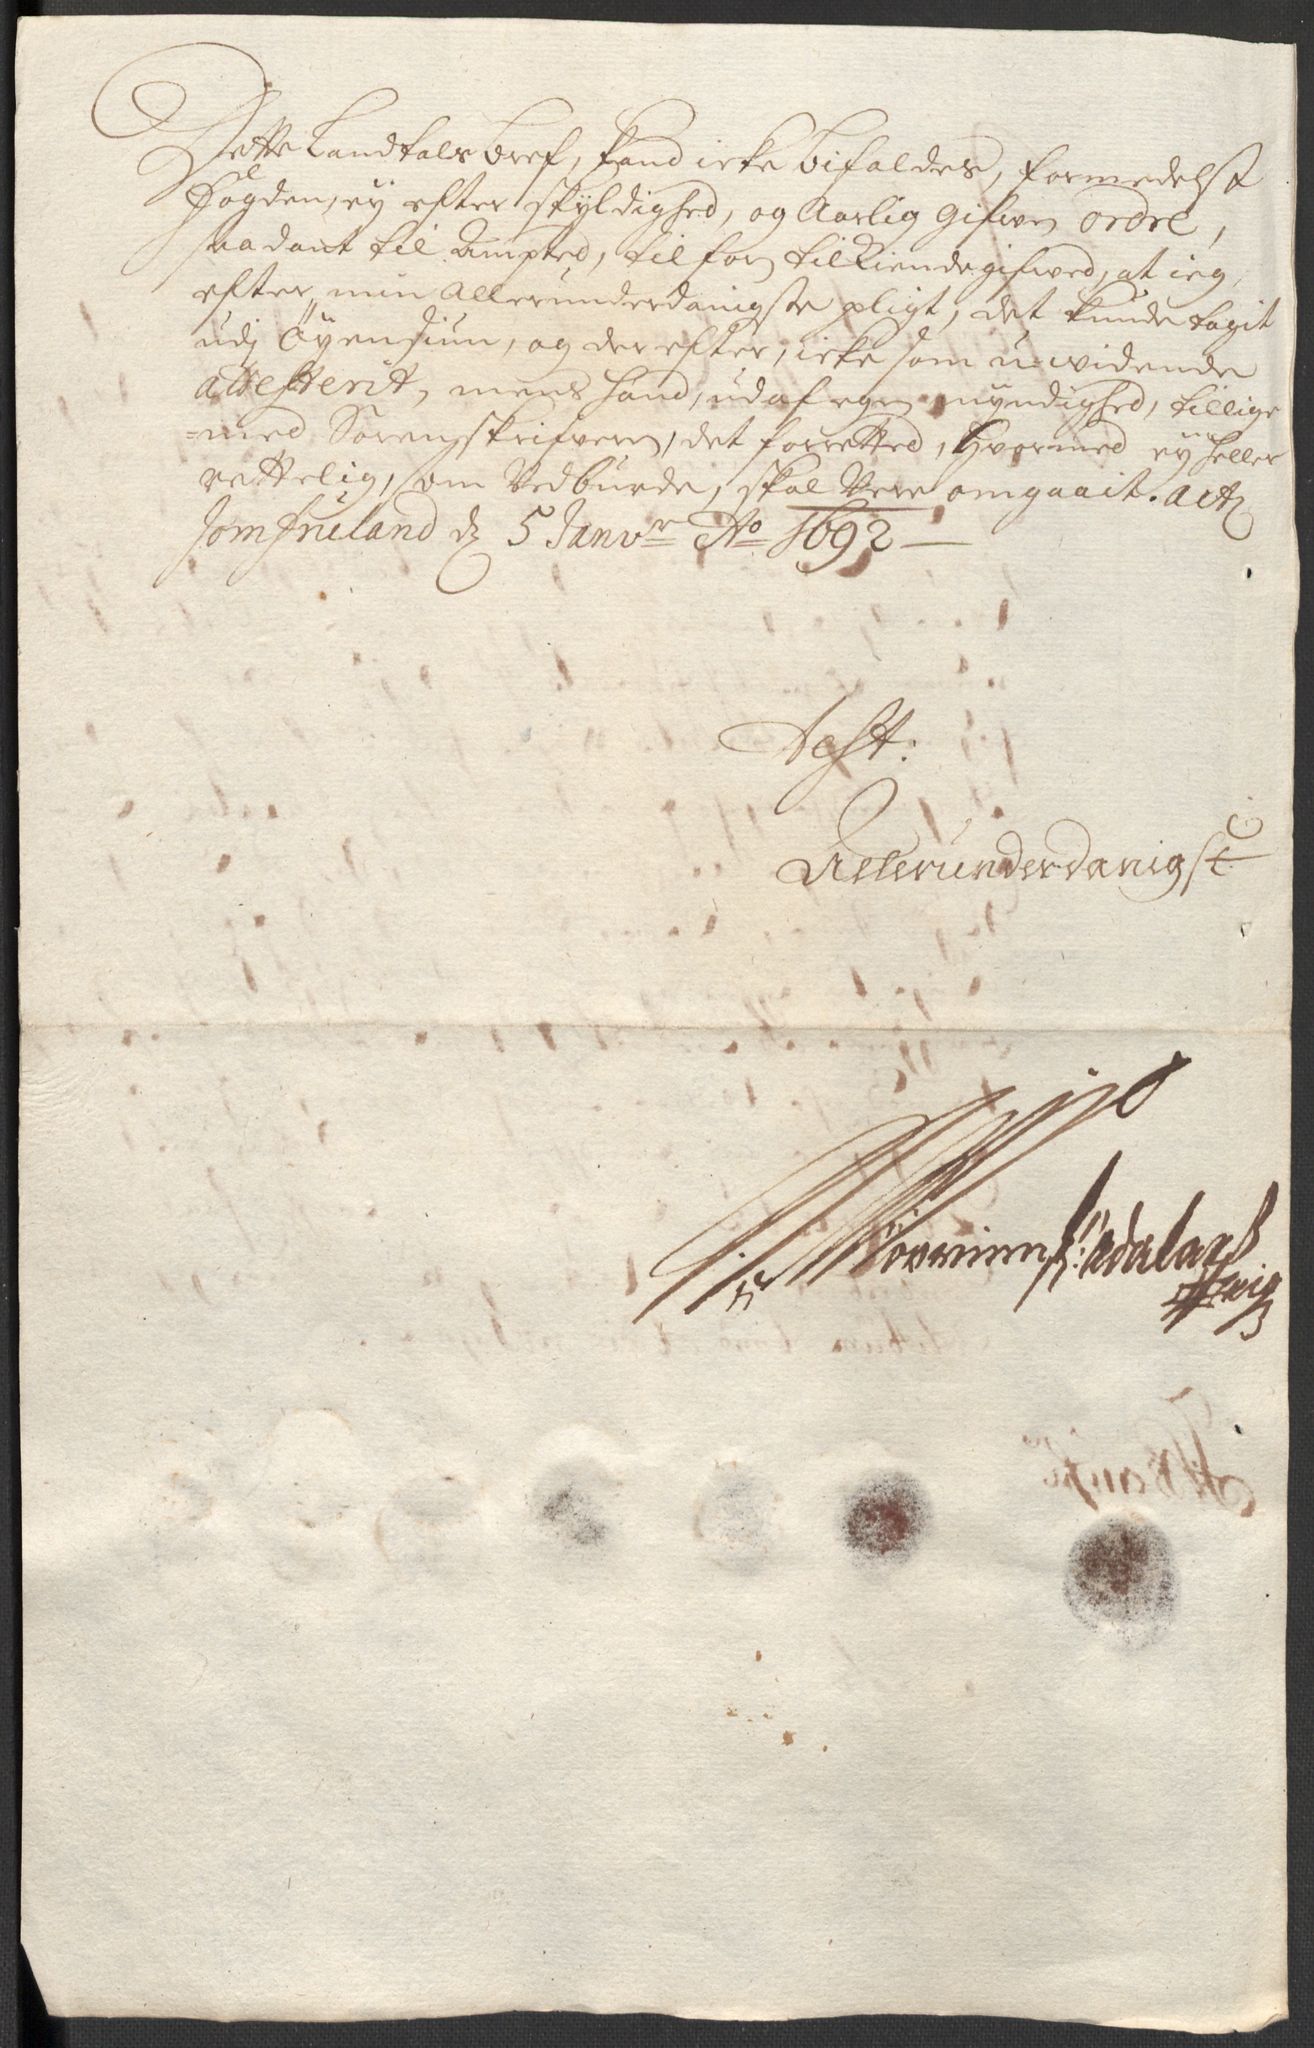 Dette Landtals bref, kand icke bifaldes, formedelst
Fogden, ey efter skyldighed, og Aarlig gifwen ordre,
saadant til Ampted, tilforn tilkiendegifwed, at ieg,
efter min Allerunderdanigste pligt, det kunde tagit
udj Öyensiun, og der efter, icke som u-widende
attesterit, mens hand, ud af egen myndighed, tillige
=med Sorenskrifveren, det forretted, hvormed ey heller
rettelig, som Vedburde, skal Vere omgaait. Act
Jomfruland d 5 Janvr Ao 1692
Aest:
Allerunderdanigst